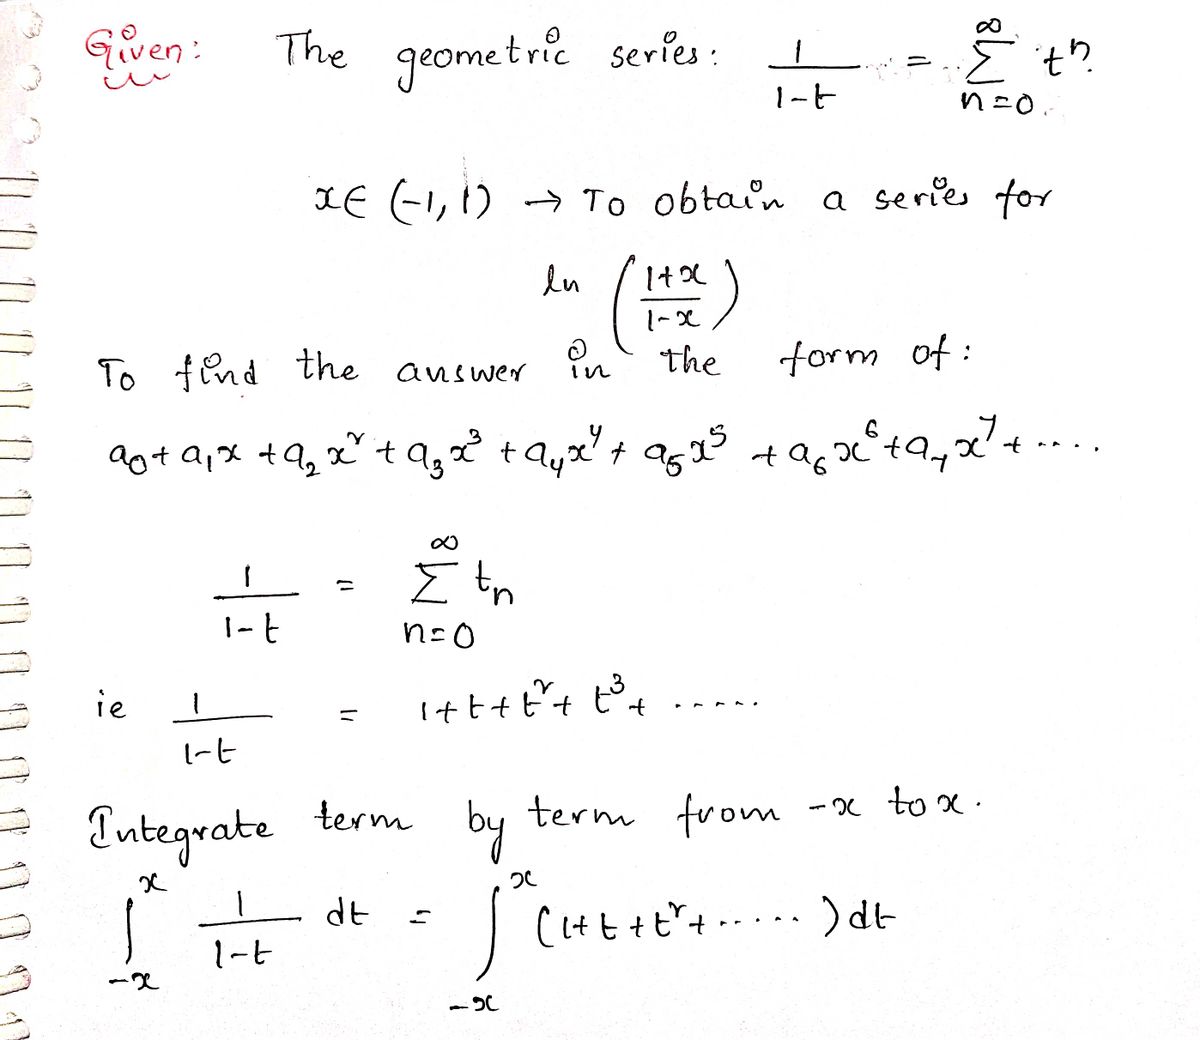 Given: The geometric series: 1/(1-t) = ∑_{n=0}^{∞} t^n.
x∈ (-1, 1) → To obtain a series for
ln ((1+x)/(1-x))
To find the answer in the form of:
a₀ + a₁x + a₂x² + a₃x³ + a₄x⁴ + a₅x⁵ + a₆x⁶ + a₇x⁷ + ....
1/(1-t) = ∑_{n=0}^{∞} t_n
ie 1/(1-t) = 1+t+t²+t³+ .....
Integrate term by term from -x to x.
∫_{-x}^{x} 1/(1-t) dt = ∫_{-x}^{x} (1+t+t²+.....) dt